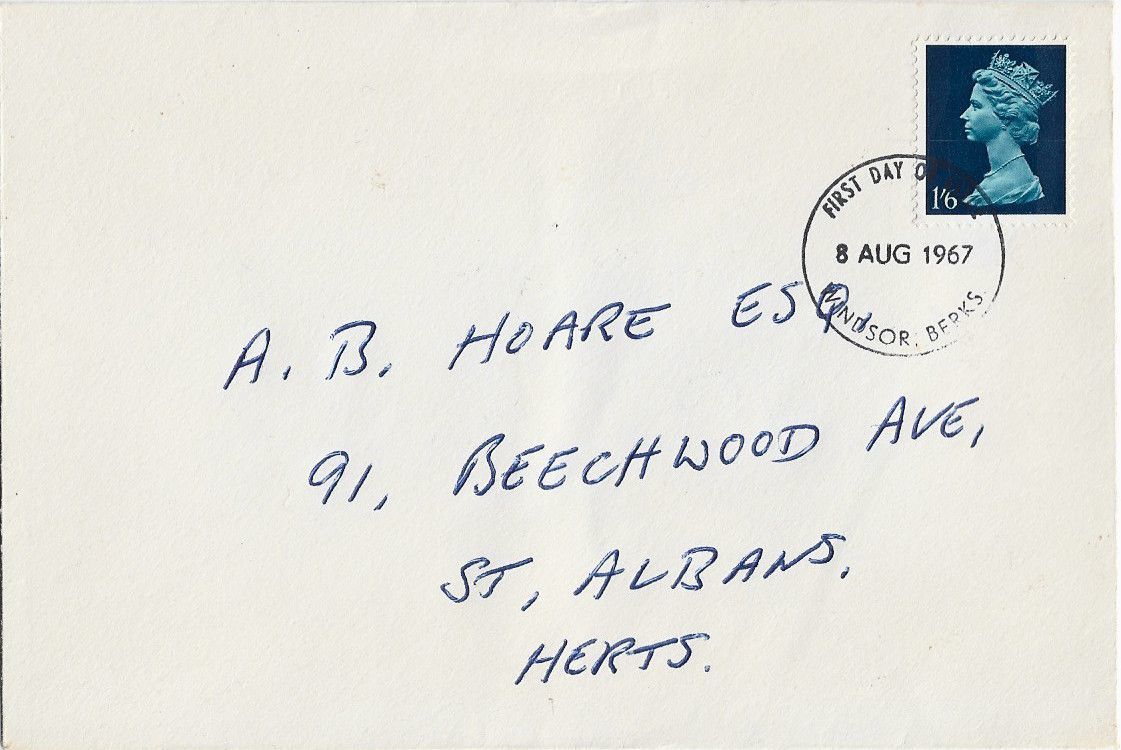 1'6
FIRST DAY OF
8 AUG 1967
WINDSOR, BERKS.
A. B. HOARE ESQ,
91, BEECHWOOD AVE,
ST, ALBANS,
HERTS.